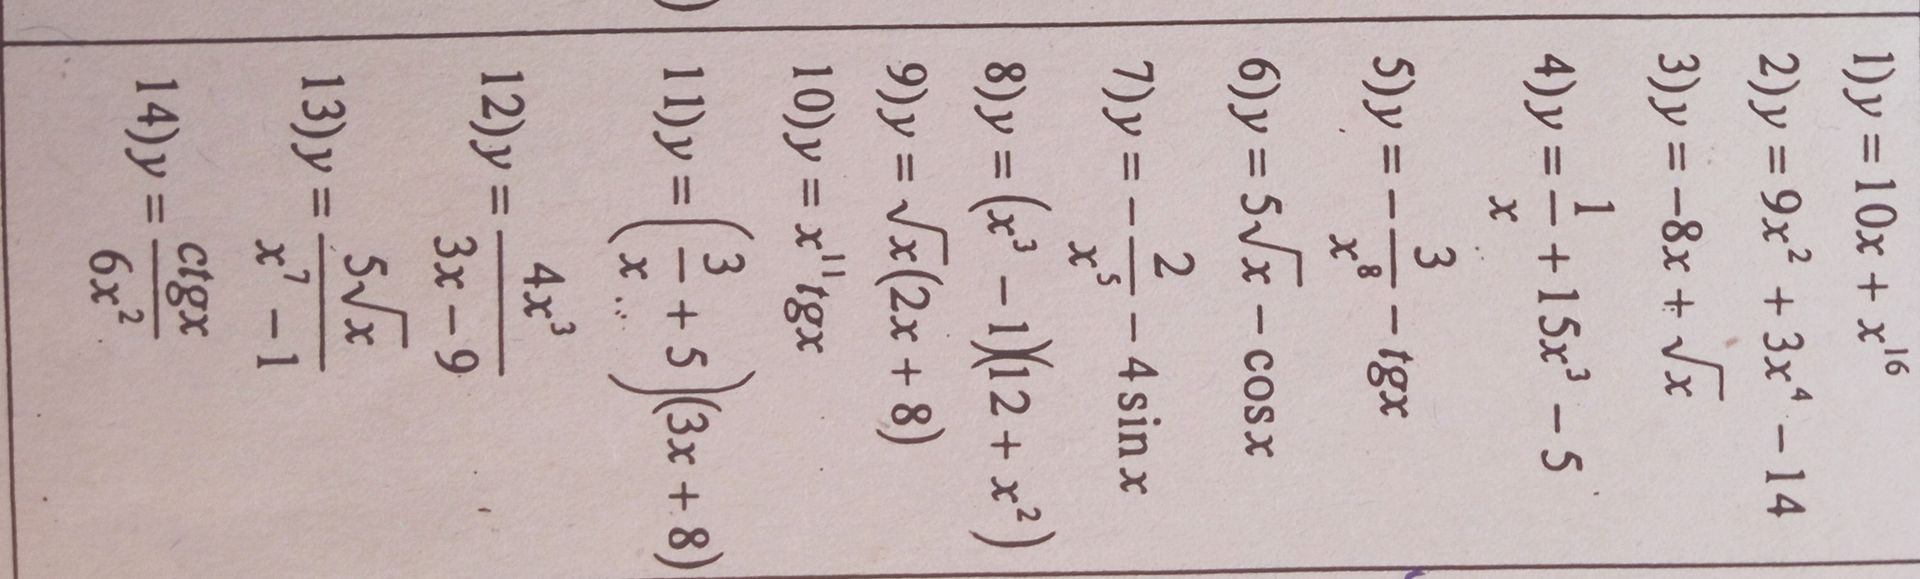 1) y = 10x + x^16
2) y = 9x^2 + 3x^4 − 14
3) y = −8x + √x
4) y = 1/x + 15x^3 − 5
5) y = −3/x^8 − tgx
6) y = 5√x − cos x
7) y = −2/x^5 − 4 sin x
8) y = (x^3 − 1)(12 + x^2)
9) y = √x(2x + 8)
10) y = x^11 tgx
11) y = (3/x + 5)(3x + 8)
12) y = 4x^3/(3x − 9)
13) y = 5√x/(x^7 − 1)
14) y = ctgx/6x^2